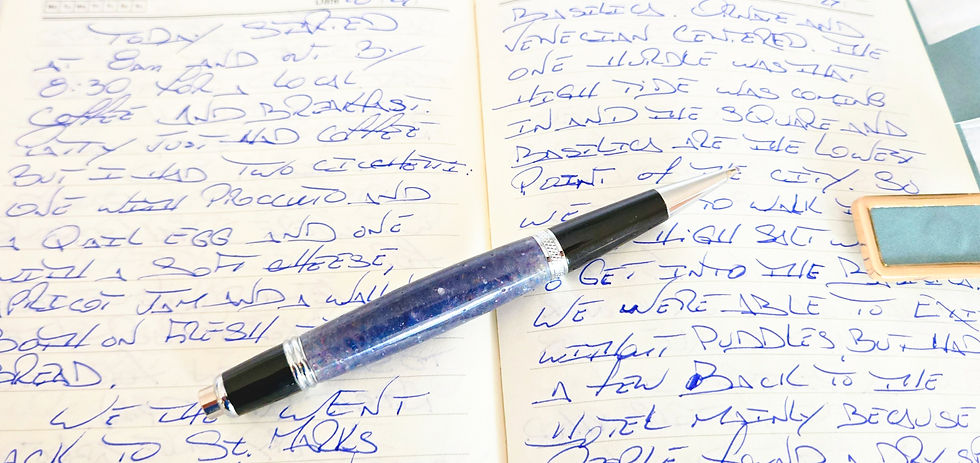 TODAY STARTED
AT 8am AND OUT BY
8:30 FOR A LOCAL
COFFEE AND BREAKFAST.
PATTY JUST HAD COFFEE
BUT I HAD TWO CICCHETTI:
ONE WITH PROCCIUTO AND
A QUAIL EGG AND ONE
WITH A SOFT CHEESE,
APRICOT JAM AND A
BOTH ON FRESH
BREAD.
WE WENT
BACK TO St. MARKS
BASILICA. ORNATE AND
VENECIAN CENTERED. THE
ONE HURDLE WAS THAT
HIGH TIDE WAS COMING
IN AND THE SQUARE AND
BASILICA ARE THE LOWEST
POINT of THE CITY. SO
WE TO WALK
HIGH SALT
TO GET INTO THE
WE WERE ABLE TO EXIT
WITHOUT PUDDLES, BUT HAD
A FEW BACK TO THE
HOTEL MAINLY BECAUSE
A DRY